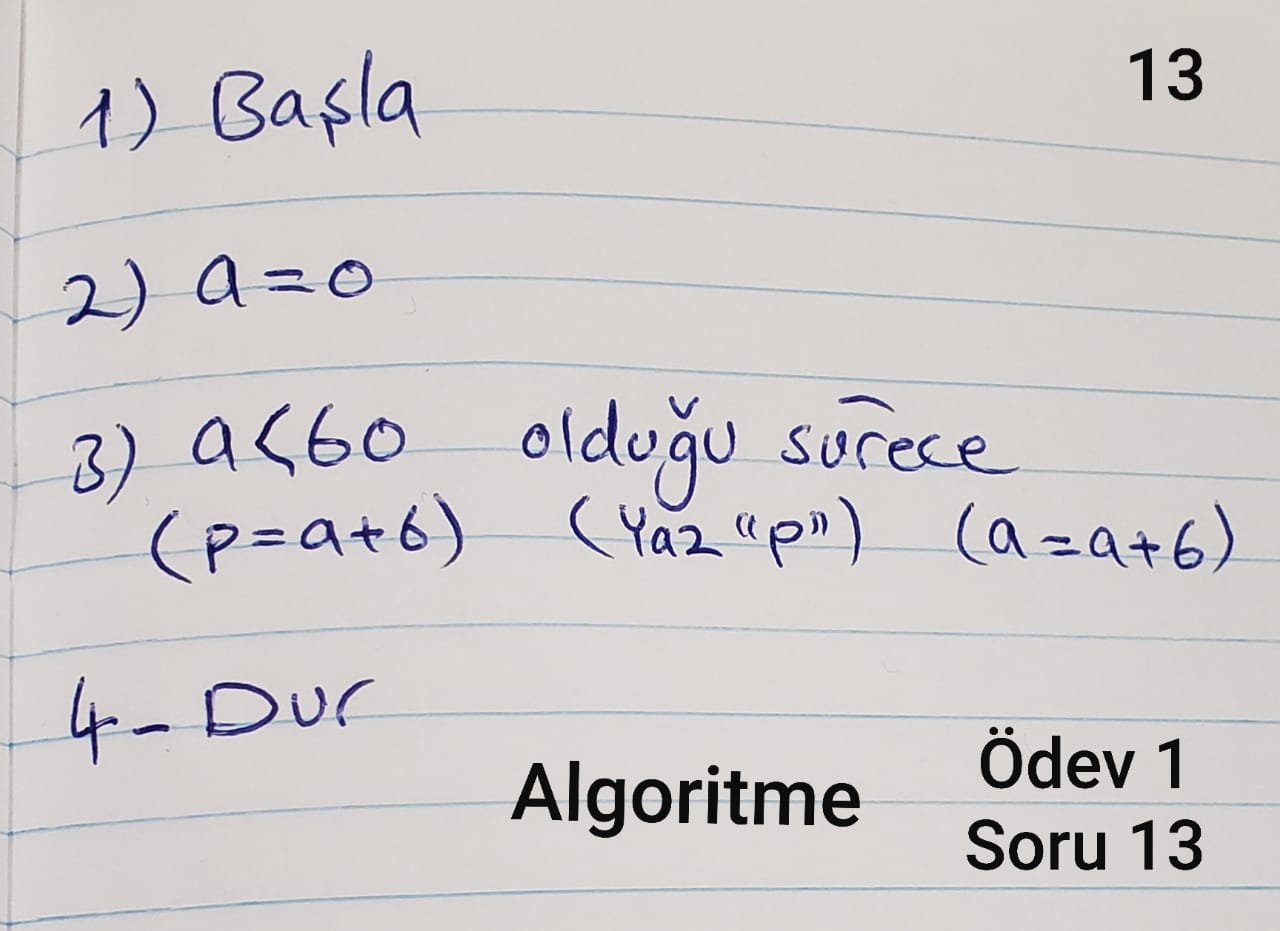 13
1) Başla
2) a=0
3) a<60 olduğu sürece
(p=a+6) (Yaz "p") (a=a+6)
4- Dur
Algoritme
Ödev 1
Soru 13